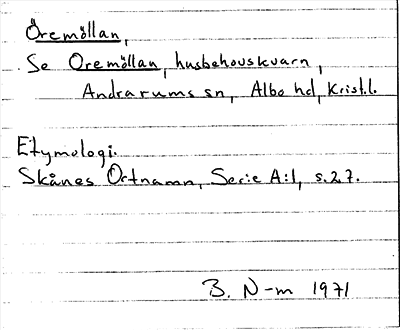 Öremöllan,
Se Oremöllan, husbehovskvarn,
Andrarums sn, Albo hd, Krist.l.
Etymologi.
Skånes Ortnamn, Serie A:1, s.27.
B. N-m 1971